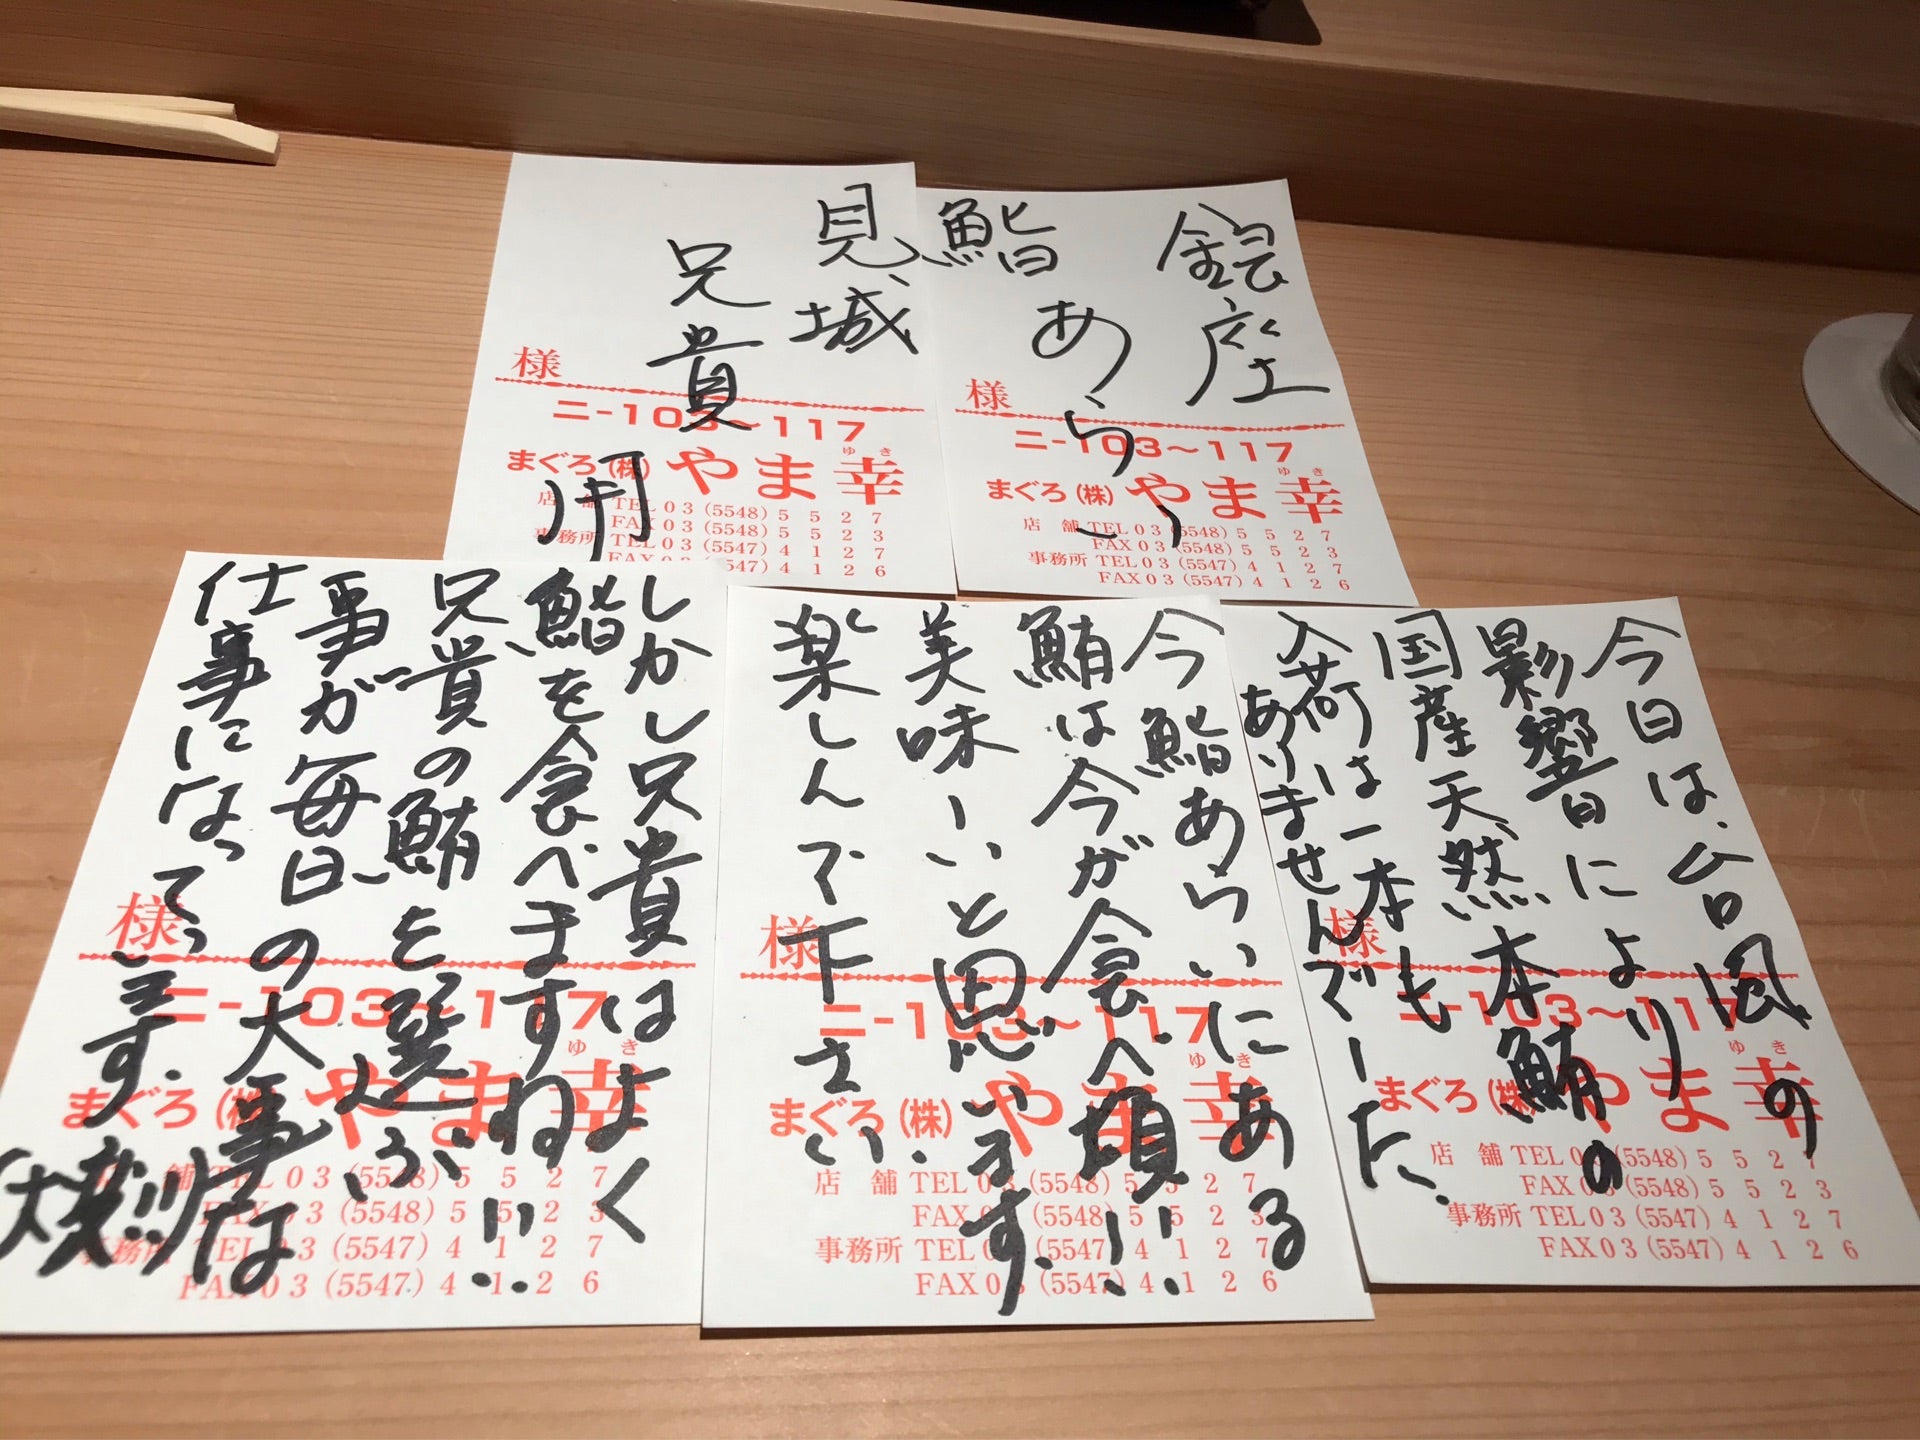 銀座
鮨あらい
見城
兄貴
用
様
ニ-103～117
まぐろ(株)やま幸
ゆき
店舗 TEL03(5548)5527
FAX03(5548)5523
事務所 TEL03(5547)4127
FAX03(5547)4126
様
ニ-103～117
まぐろ(株)やま幸
ゆき
店舗 TEL03(5548)5527
FAX03(5548)5523
事務所 TEL03(5547)4127
FAX03(5547)4126
今日は、台風の
影響により
国産天然本鮪の
入荷は一本も
ありませんでした、
様
ニ-103～117
まぐろ(株)やま幸
ゆき
店舗 TEL03(5548)5527
FAX03(5548)5523
事務所 TEL03(5547)4127
FAX03(5547)4126
今鮨あらいにある
鮪は今が食べ頃!!
美味しいと思います。
楽しんで下さい、
様
ニ-103～117
まぐろ(株)やま幸
ゆき
店舗 TEL03(5548)5527
FAX03(5548)5523
事務所 TEL03(5547)4127
FAX03(5547)4126
しかし兄貴はよく
鮨を食べますね!!
兄貴の鮪を選ぶ
事が毎日の大事な
仕事になってます。
様
ニ-103～117
まぐろ(株)やま幸
ゆき
店舗 TEL03(5548)5527
FAX03(5548)5523
事務所 TEL03(5547)4127
FAX03(5547)4126